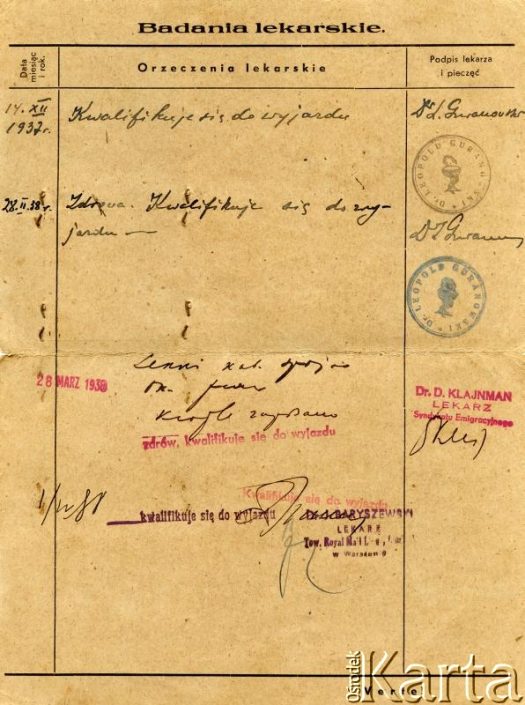 Badania lekarskie.
Data
miesiąc
i rok.
Orzeczenia lekarskie
Podpis lekarza
i pieczęć
14. XII
1937 r.
Kwalifikuje się do wyjazdu
Dr L. Guranowski
Dr. LEOPOLD GURANOWSKI
28. II. 38 r.
Zdrowa. Kwalifikuje się do wy-
jazdu
Dr L. Guranow
Dr. LEOPOLD GURANOWSKI
28 MARZ 1938
zdrów, kwalifikuje się do wyjazdu
Dr. D. KLAJNMAN
LEKARZ
Syndykatu Emigracyjnego
Kwalifikuje się do wyjazdu
kwalifikuje się do wyjazdu
BARYSZEWSKI
LEKARZ
Tow. Royal Mail
w Warszawie
Verte!
Ośrodek
Karta